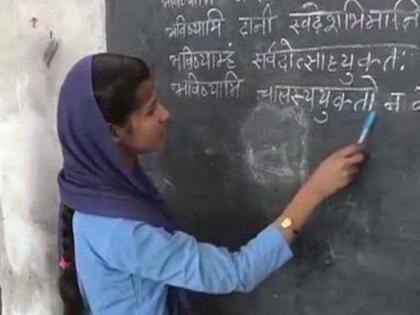 भविष्यामि दानी स्वदेशाभिमानि
भविष्याम्हं सर्वदोत्साहयुक्तः
भविष्यामि चालस्ययुक्तो न